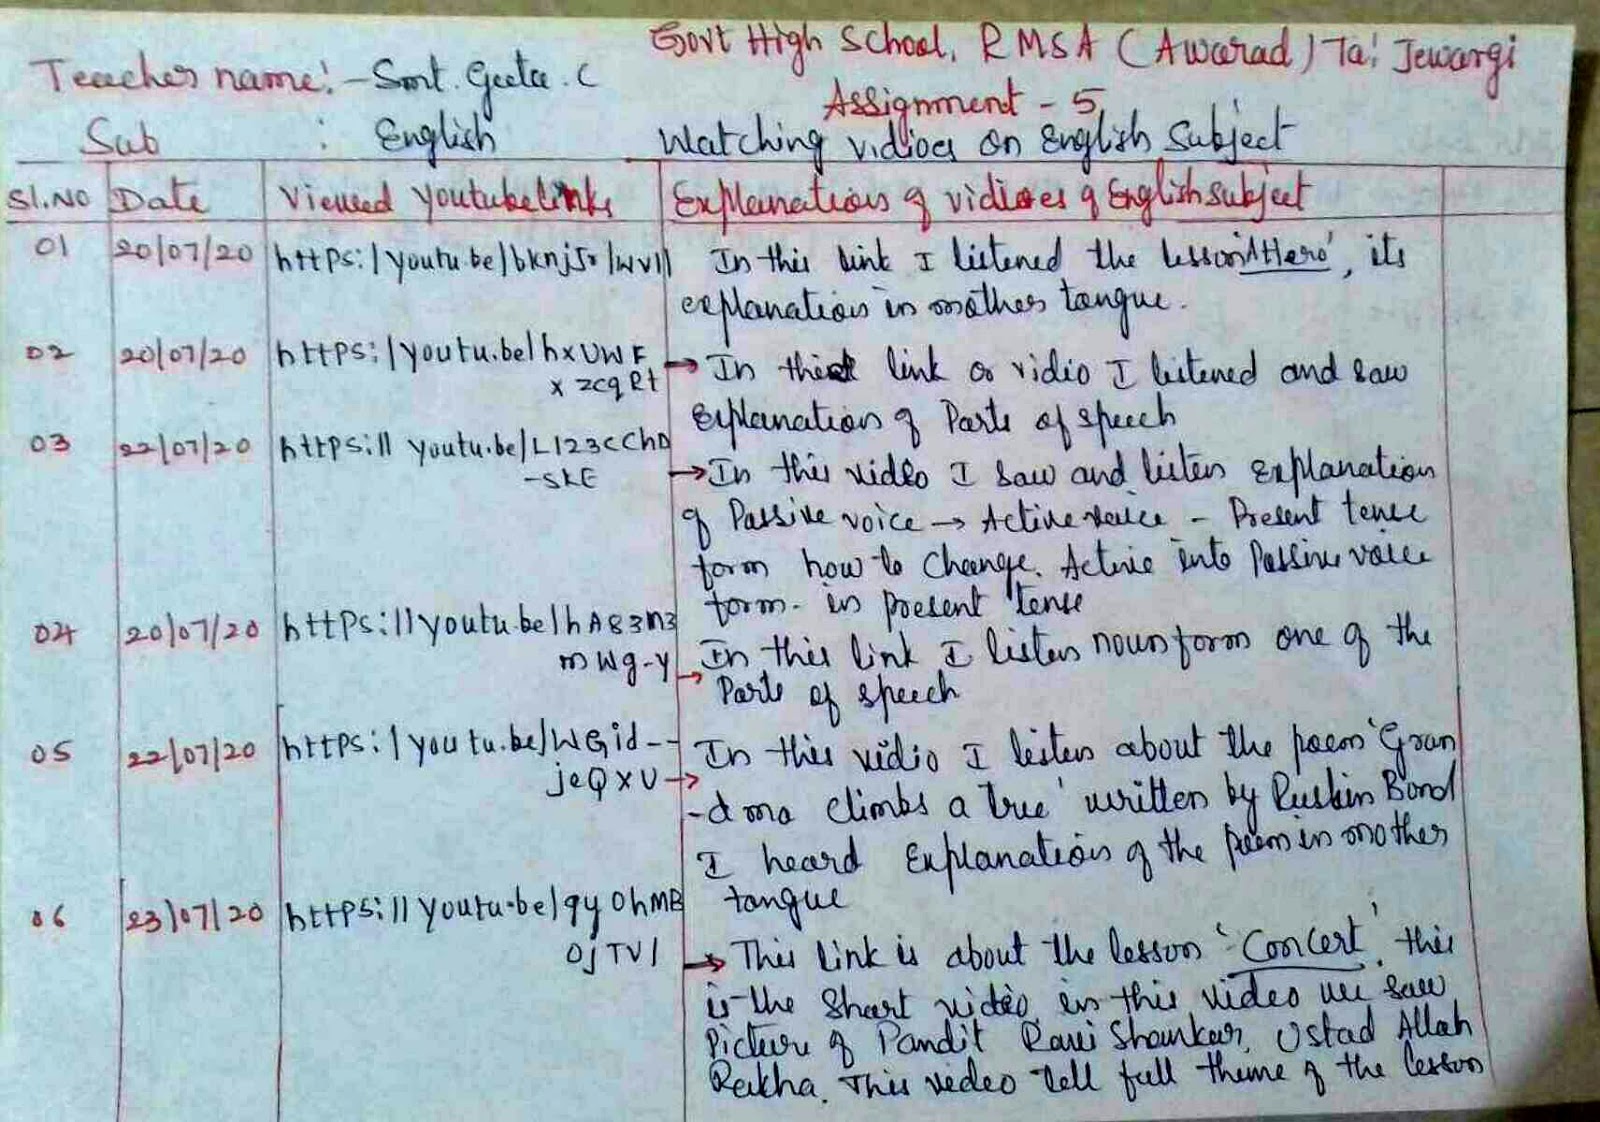 Govt High School, RMSA (Awarad) Ta: Jewargi
Teacher name:- Smt. Geeta. C
Assignment - 5
Sub : English
Watching vidioes on English Subject
Sl.No Date Viewed Youtube links Explanations of vidioes of English subject
01 20/07/20 https:/youtu.be/ In this link I listened the lesson 'A Hero', its
explanation in mother tongue.
02 20/07/20 https:/youtu.be/hxUWF
xzcqRt
→ In link or vidio I listened and saw
Explanation of Parts of speech
03 22/07/20 https:// youtu.be/L123cChD
-skE
→ In this vidéo I saw and listen Explanation
of Passive voice → Active voice - Present tense
form how to change. Active into Passive voice
form. in present tense
04 20/07/20 https://youtu.be/hA83m3
mWg-y
→ In this link I listen noun form one of the
Parts of speech
05 22/07/20 https:/youtu.be/WGid--
jeQXU
→ In this vidio I listen about the poem 'Gran
-dma climbs a tree' written by Ruskin Bond
I heard Explanation of the poem in mother
tongue
06 23/07/20 https://youtu.be/9yOhMB
OjTVI
→ This link is about the lesson 'Concert'. this
is the Short vidéo, in this video we saw
Picture of Pandit Ravi Shankar, Ustad Allah
Rakha. This video tell full theme of the lesson